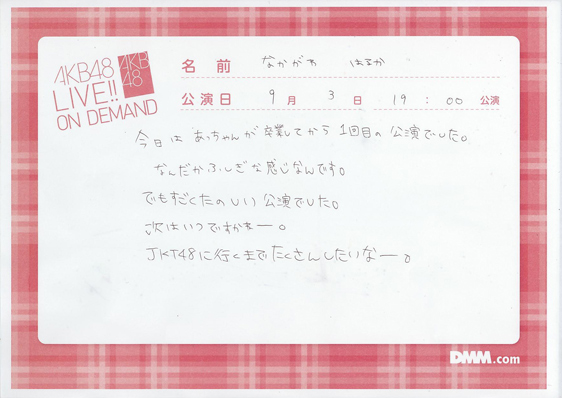 AKB48
LIVE!!
ON DEMAND
AKB
48
名前 なかがわ はるか
公演日 9月 3日 19:00 公演
今日は あっちゃんが卒業してから 1回目の 公演でした。
なんだかふしぎな感じなんです。
でもすごくたのしい公演でした。
次はいつですかぁー。
JKT48に行くまでたくさんしたいなー。
DMM.com